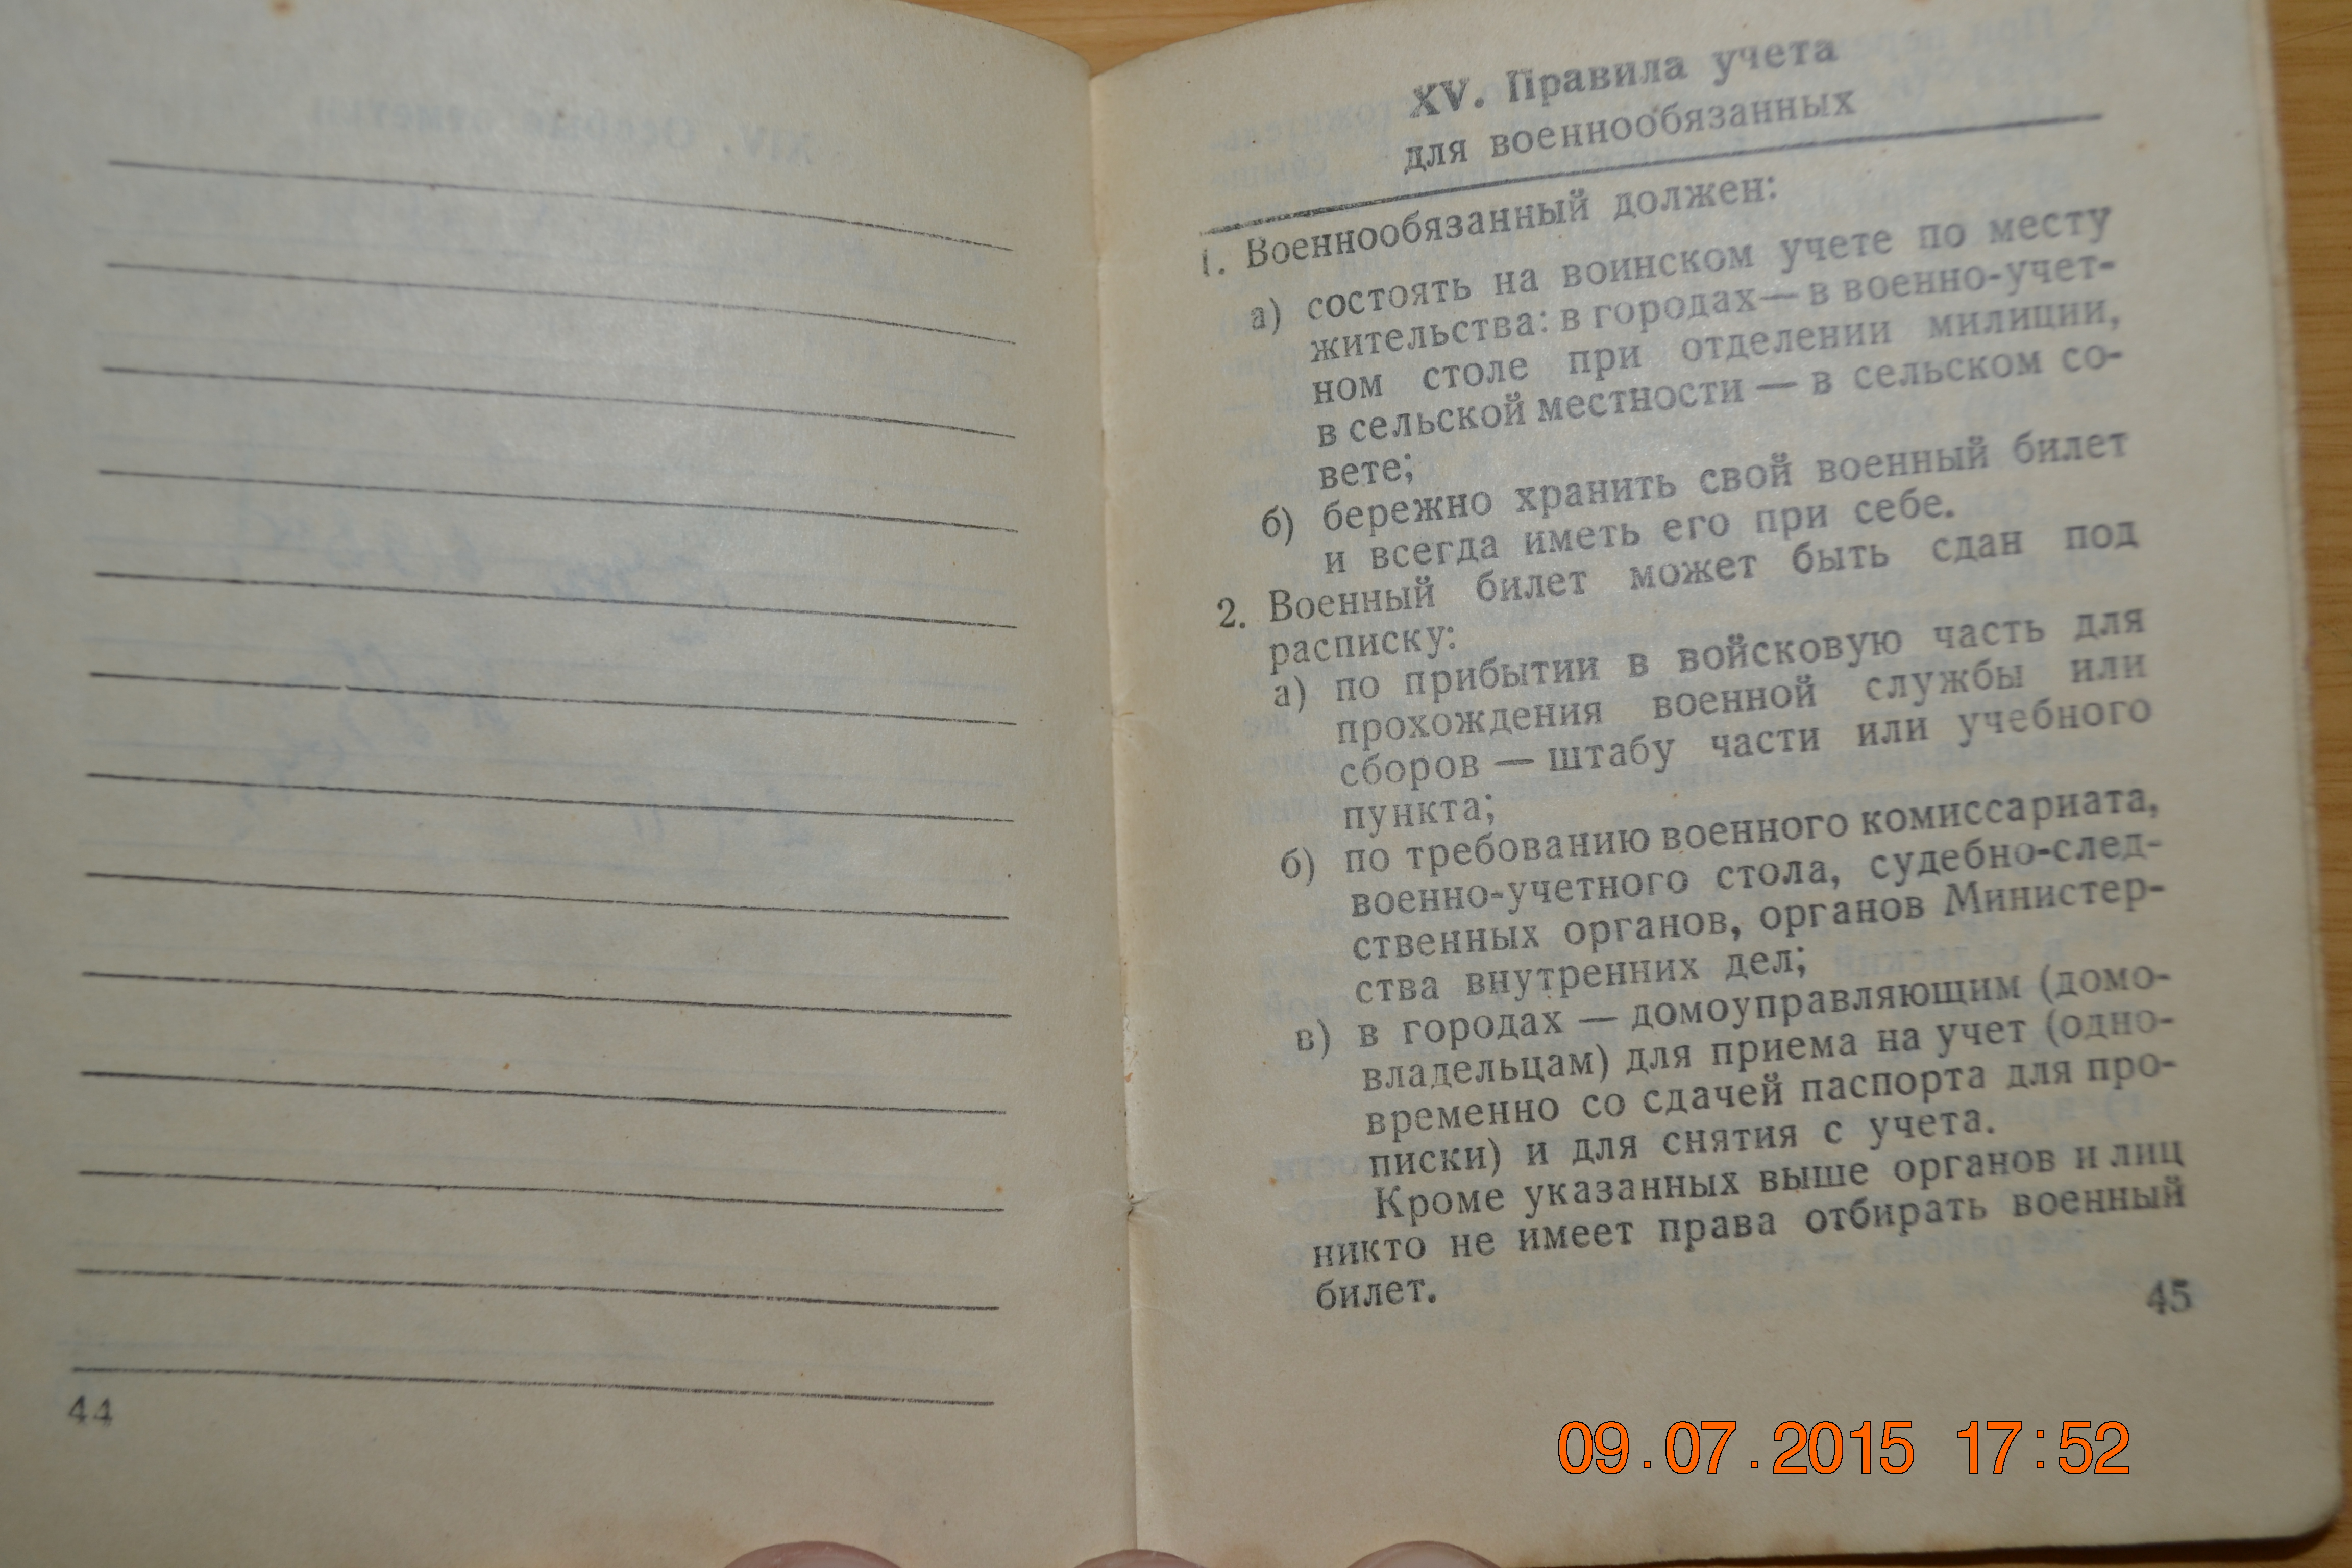 44
XV. Правила учета
для военнообязанных
1. Военнообязанный должен:
а) состоять на воинском учете по месту
жительства: в городах — в военно-учет-
ном столе при отделении милиции,
в сельской местности — в сельском со-
вете;
б) бережно хранить свой военный билет
и всегда иметь его при себе.
2. Военный билет может быть сдан под
расписку:
а) по прибытии в войсковую часть для
прохождения военной службы или
сборов — штабу части или учебного
пункта;
б) по требованию военного комиссариата,
военно-учетного стола, судебно-след-
ственных органов, органов Министер-
ства внутренних дел;
в) в городах — домоуправляющим (домо-
владельцам) для приема на учет (одно-
временно со сдачей паспорта для про-
писки) и для снятия с учета.
Кроме указанных выше органов и лиц
никто не имеет права отбирать военный
билет.
45
09.07.2015 17:52